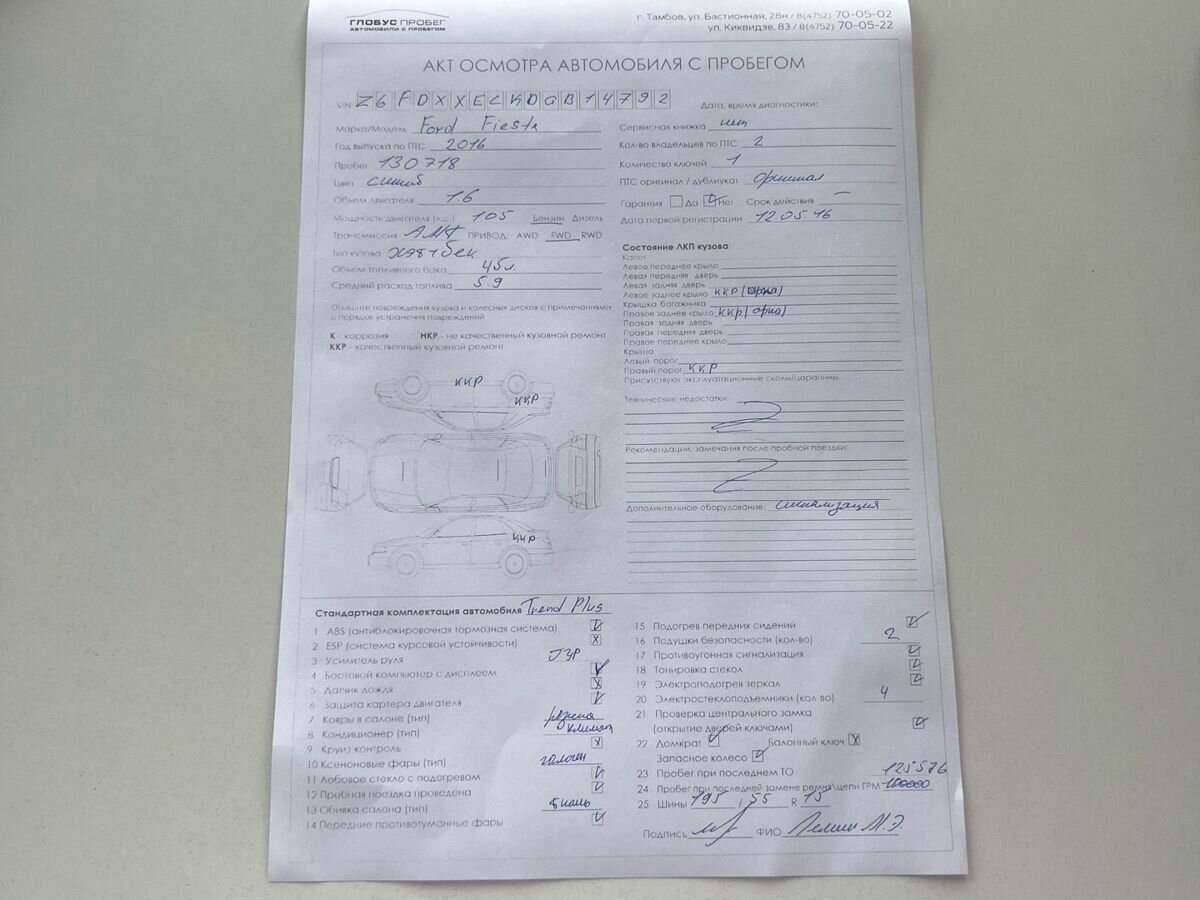 ГЛОБУС ПРОБЕГ
АВТОМОБИЛИ С ПРОБЕГОМ
г. Тамбов, ул. Бастионная, 28н / 8(4752) 70-05-02
ул. Киквидзе, 83 / 8(4752) 70-05-22
АКТ ОСМОТРА АВТОМОБИЛЯ С ПРОБЕГОМ
VIN Z6FDXXELKDGB14792
Дата, время диагностики:
Марка/Модель Ford Fiesta
Год выпуска по ПТС 2016
Пробег 130718
Цвет синий
Объем двигателя 1.6
Мощность двигателя (л.с.) 105 Бензин Дизель
Трансмиссия АМТ ПРИВОД: AWD FWD RWD
Тип кузова хэтчбек
Объем топливного бака 45л.
Средний расход топлива 5.9
Сервисная книжка нет
Кол-во владельцев по ПТС 2
Количество ключей 1
ПТС оригинал / дубликат Оригинал
Гарантия Да Нет Срок действия –
Дата первой регистрации 12.05.16
Опишите повреждения кузова и колесных дисков с примечаниями
о порядке устранения повреждений
К - коррозия НКР - не качественный кузовной ремонт
ККР - качественный кузовной ремонт
ККР
ККР
ККР
Состояние ЛКП кузова:
Капот
Левое переднее крыло
Левая передняя дверь
Левая задняя дверь
Левое заднее крыло ККР (арка)
Крышка багажника
Правое заднее крыло ККР (арка)
Правая задняя дверь
Правая передняя дверь
Правое переднее крыло
Крыша
Левый порог
Правый порог ККР
Присутствуют эксплуатационные сколы/царапины.
Технические недостатки:
Рекомендации, замечания после пробной поездки:
Дополнительное оборудование: сигнализация
Стандартная комплектация автомобиля Trend Plus
1 ABS (антиблокировочная тормозная система)
2 ESP (система курсовой устойчивости) X
3 Усилитель руля ГУР
4 Бортовой компьютер с дисплеем
5 Датчик дождя X
6 Защита картера двигателя
7 Ковры в салоне (тип) резина
8 Кондиционер (тип) климат
9 Круиз контроль X
10 Ксеноновые фары (тип) галоген
11 Лобовое стекло с подогревом
12 Пробная поездка проведена
13 Обивка салона (тип) ткань
14 Передние противотуманные фары
15 Подогрев передних сидений
16 Подушки безопасности (кол-во) 2
17 Противоугонная сигнализация
18 Тонировка стекол
19 Электроподогрев зеркал
20 Электростеклоподъемники (кол-во) 4
21 Проверка центрального замка
(открытие дверей ключами)
22 Домкрат Балонный ключ X
Запасное колесо
23 Пробег при последнем ТО 125576
24 Пробег при последней замене ремня\цепи ГРМ 100000
25 Шины 195 / 55 R 15
Подпись ФИО